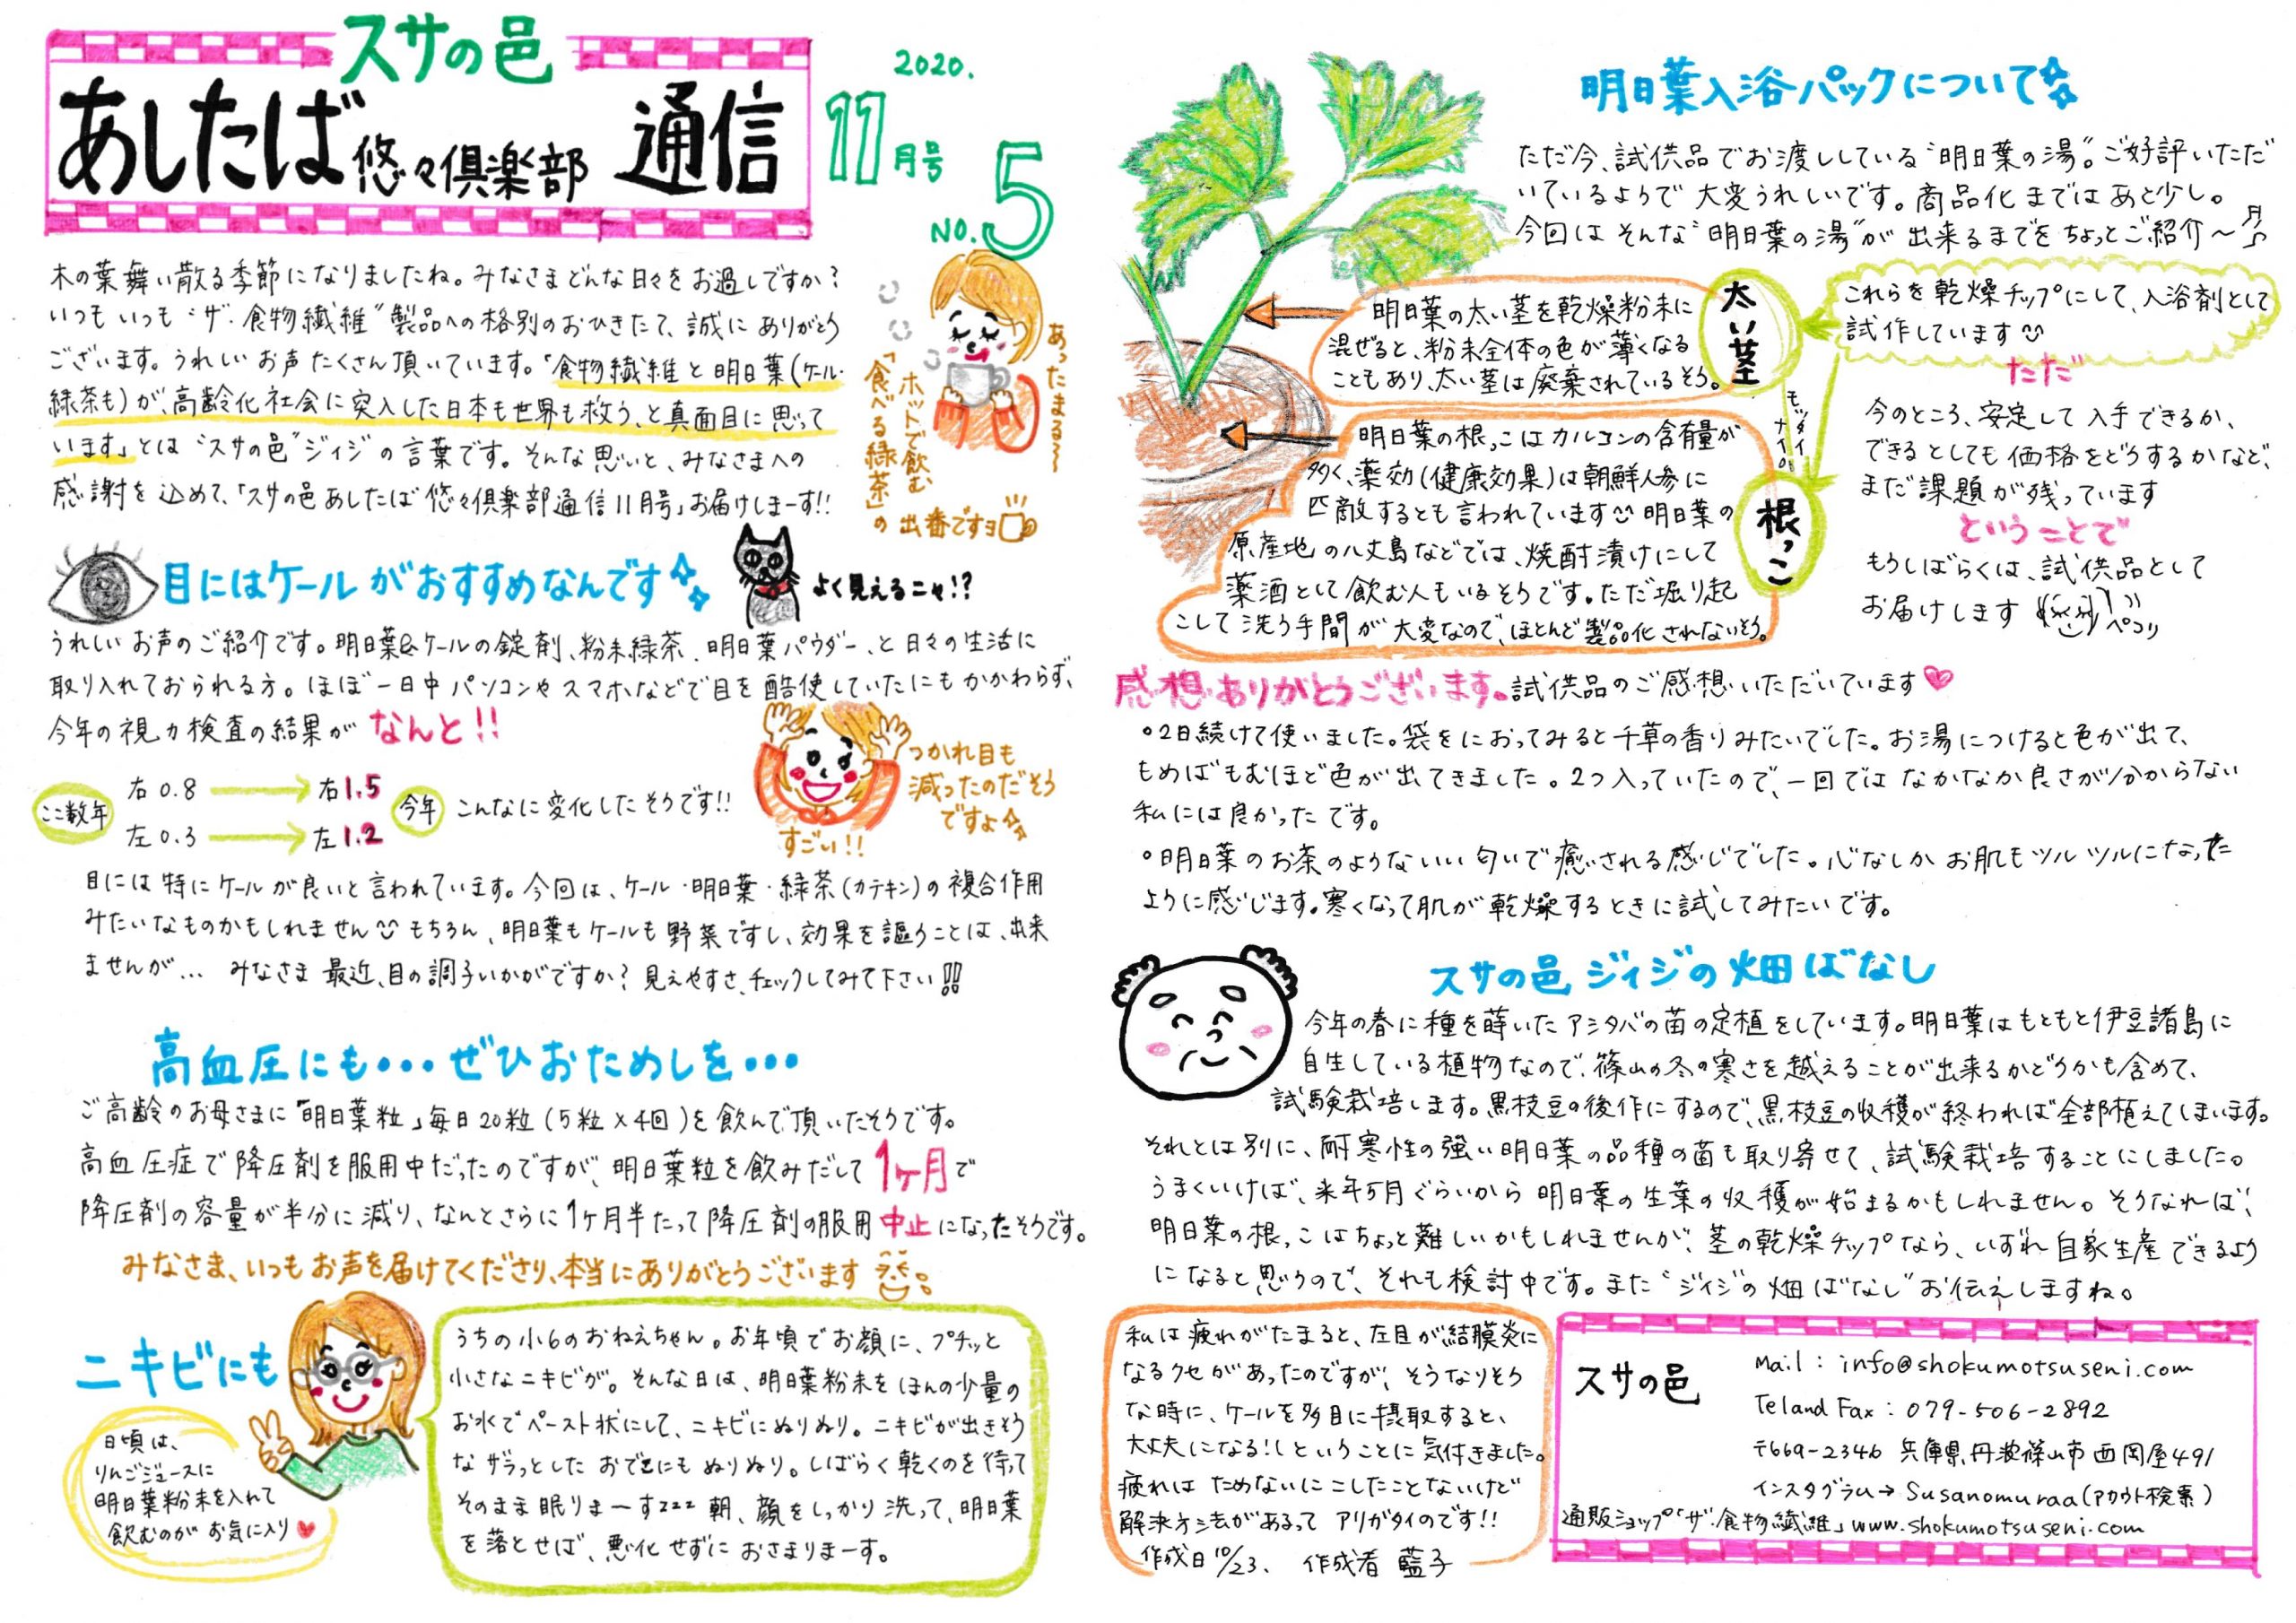 スサの邑
あしたば悠々倶楽部 通信
2020.
11月号
NO.5
木の葉舞い散る季節になりましたね。みなさまどんな日々をお過しですか?
いつもいつも“ザ・食物繊維”製品への格別のおひきたて、誠にありがとう
ございます。うれしいお声たくさん頂いています。「食物繊維と明日葉(ケール・
緑茶も)が、高齢化社会に突入した日本も世界も救う、と真面目に思って
います」とは“スサの邑”ジイジ”の言葉です。そんな思いと、みなさまへの
感謝を込めて、「スサの邑あしたば悠々倶楽部通信11月号」お届けしまーす!!
あったまる〜
ホットで飲む
「食べる緑茶」の
出番ですヨ
目にはケールがおすすめなんです
よく見えるニャ!?
うれしいお声のご紹介です。明日葉&ケールの錠剤、粉末緑茶、明日葉パウダー、と日々の生活に
取り入れておられる方。ほぼ一日中パソコンやスマホなどで目を酷使していたにもかかわらず、
今年の視力検査の結果がなんと!!
ここ数年
右0.8 → 右1.5
左0.3 → 左1.2
今年
こんなに変化したそうです!!
すごい!!
つかれ目も
減ったのだそう
ですよ
目には特にケールが良いと言われています。今回は、ケール・明日葉・緑茶(カテキン)の複合作用
みたいなものかもしれません もちろん、明日葉もケールも野菜ですし、効果を謳うことは、出来
ませんが… みなさま最近、目の調子いかがですか?見えやすさ、チェックしてみて下さい!!
高血圧にも・・・ぜひおためしを・・・
ご高齢のお母さまに「明日葉粒」毎日20粒(5粒×4回)を飲んで頂いたそうです。
高血圧症で降圧剤を服用中だったのですが、明日葉粒を飲みだして1ヶ月で
降圧剤の容量が半分に減り、なんとさらに1ヶ月半たって降圧剤の服用中止になったそうです。
みなさま、いつもお声を届けてくださり、本当にありがとうございます
ニキビにも
日頃は、
りんごジュースに
明日葉粉末を入れて
飲むのがお気に入り
うちの小6のおねえちゃん。お年頃でお顔に、プチッと
小さなニキビが。そんな日は、明日葉粉末をほんの少量の
お水でペースト状にして、ニキビにぬりぬり。ニキビが出きそう
なザラっとしたおでこにもぬりぬり。しばらく乾くのを待って
そのまま眠りまーすzzz 朝、顔をしっかり洗って、明日葉
を落とせば、悪化せずにおさまりまーす。
明日葉入浴パックについて
ただ今、試供品でお渡ししている“明日葉の湯”。ご好評いただ
いているようで大変うれしいです。商品化まではあと少し。
今回はそんな“明日葉の湯”が出来るまでをちょっとご紹介〜♬
太い茎
明日葉の太い茎を乾燥粉末に
混ぜると、粉末全体の色が薄くなる
こともあり、太い茎は廃棄されているそう。
モッタイナイ
根っこ
明日葉の根っこはカルコンの含有量が
多く、薬効(健康効果)は朝鮮人参に
匹敵するとも言われています 明日葉の
原産地の八丈島などでは、焼酎漬けにして
薬酒として飲む人もいるそうです。ただ堀り起
こして洗う手間が大変なので、ほとんど製品化されないそう。
これらを乾燥チップにして、入浴剤として
試作しています
ただ
今のところ、安定して入手できるか、
できるとしても価格をどうするかなど、
まだ課題が残っています
ということで
もうしばらくは、試供品として
お届けします
ペコリ
感想ありがとうございます。試供品のご感想いただいています
○2日続けて使いました。袋をにおってみると千草の香りみたいでした。お湯につけると色が出て、
もめばもむほど色が出てきました。2つ入っていたので、一回ではなかなか良さが分からない
私には良かったです。
○明日葉のお茶のようないい匂いで癒される感じでした。心なしかお肌もツルツルになった
ように感じます。寒くなって肌が乾燥するときに試してみたいです。
スサの邑ジイジの畑ばなし
今年の春に種を蒔いたアシタバの苗の定植をしています。明日葉はもともと伊豆諸島に
自生している植物なので、篠山の冬の寒さを越えることが出来るかどうかも含めて、
試験栽培します。黒枝豆の後作にするので、黒枝豆の収穫が終われば全部植えてしまいます。
それとは別に、耐寒性の強い明日葉の品種の苗も取り寄せて、試験栽培することにしました。
うまくいけば、来年5月ぐらいから明日葉の生葉の収穫が始まるかもしれません。そうなれば、
明日葉の根っこはちょっと難しいかもしれませんが、茎の乾燥チップなら、いずれ自家生産できるよう
になると思うので、それも検討中です。また“ジイジの畑ばなし”お伝えしますね。
私は疲れがたまると、左目が結膜炎に
なるクセがあったのですが、そうなりそう
な時に、ケールを多目に摂取すると、
大丈夫になる!ということに気付きました。
疲れはためないにこしたことないけど
解決方法があるって アリガタイのです!!
作成日10/23. 作成者 藍子
スサの邑
Mail: info@shokumotsuseni.com
Tel and Fax: 079-506-2892
〒669-2346 兵庫県丹波篠山市西岡屋491
インスタグラム→ Susanomuraa(アカウト検索)
通販ショップ「ザ・食物繊維」www.shokumotsuseni.com